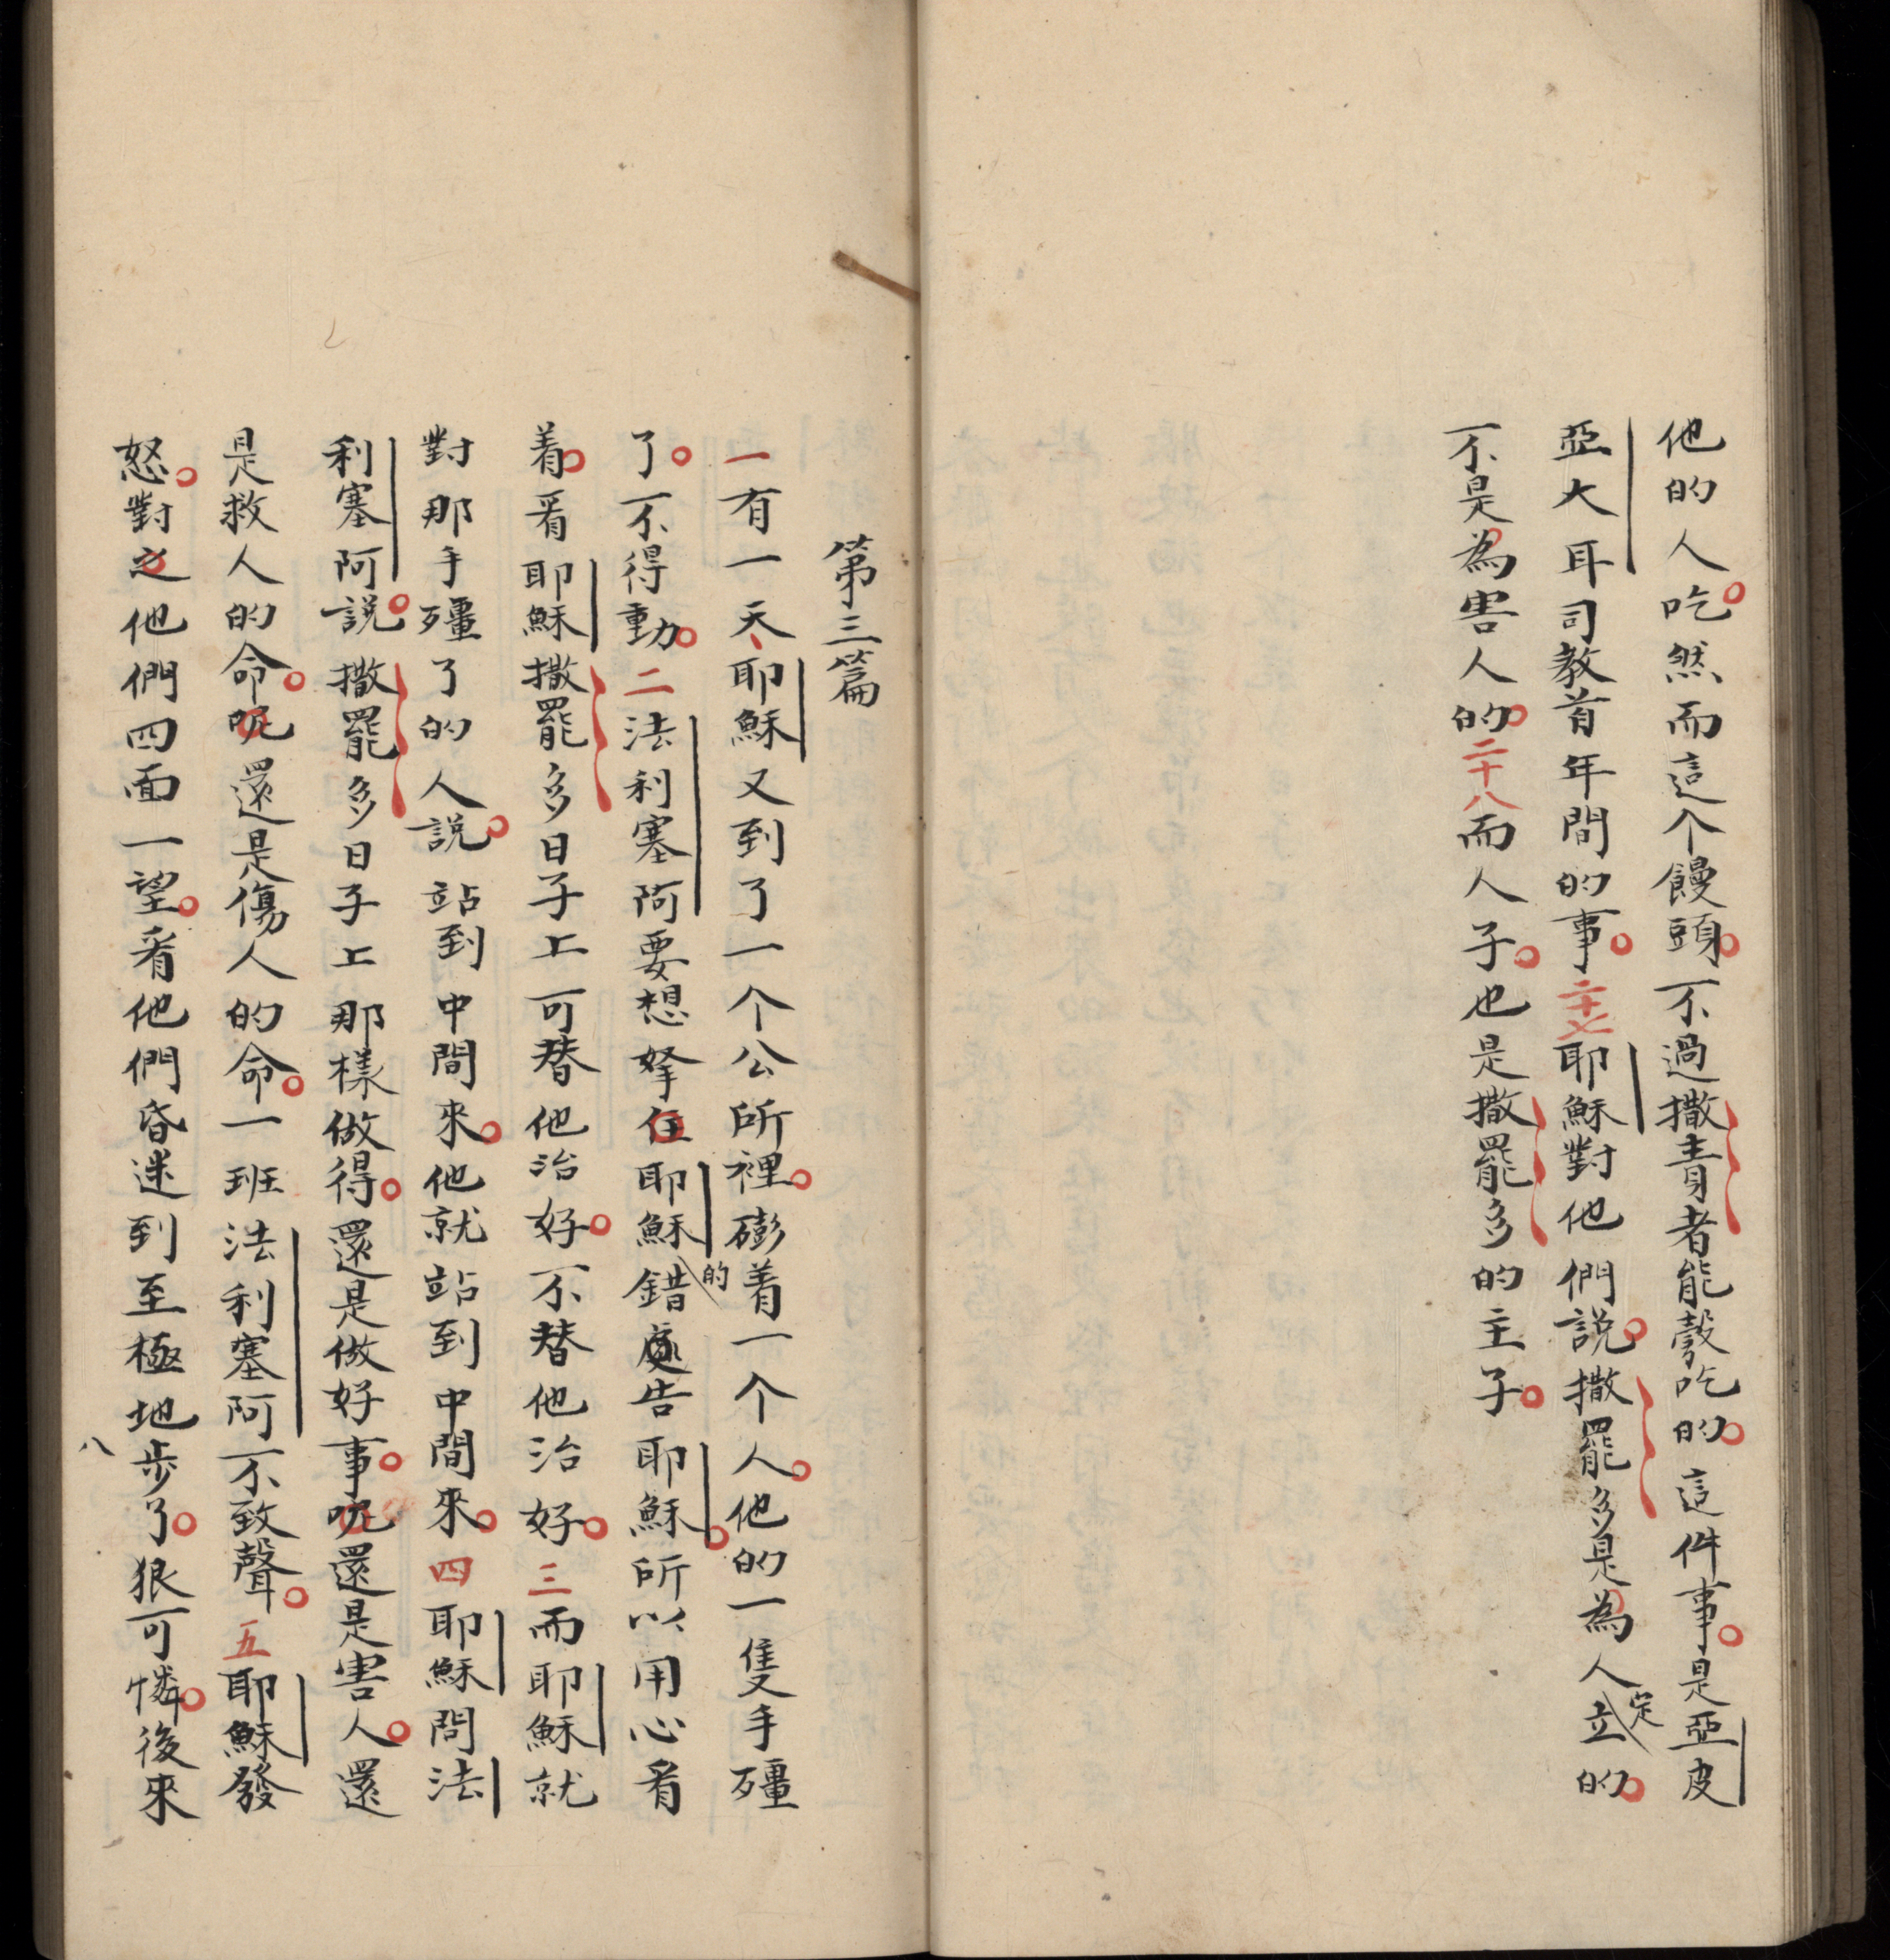 他的人吃。然而這个饅頭。不過撒責者能彀吃的。這件事。是亞皮
亞大耳司教首年間的事。二十七耶穌對他們説。撒罷多是為人立定的。
不是為害人的。二十八而人子。也是撒罷多的主子。
第三篇
一有一天、耶穌又到了一个公所裡。磞着一个人。他的一隻手殭
了。不得動。二法利塞阿要想拏住耶穌的錯處告耶穌。所以用心看
着。看耶穌撒罷多日子上可替他治好。不替他治好。三而耶穌就
對那手殭了的人説。站到中間來。他就站到中間來。四耶穌問法
利塞阿説。撒罷多日子上那樣做得。還是做好事。呢還是害人。還
是救人的命。呢還是傷人的命。一班法利塞阿不致聲。五耶穌發
怒。對之他們四面一望。看他們昏迷到至極地步了。狠可憐。後來
八